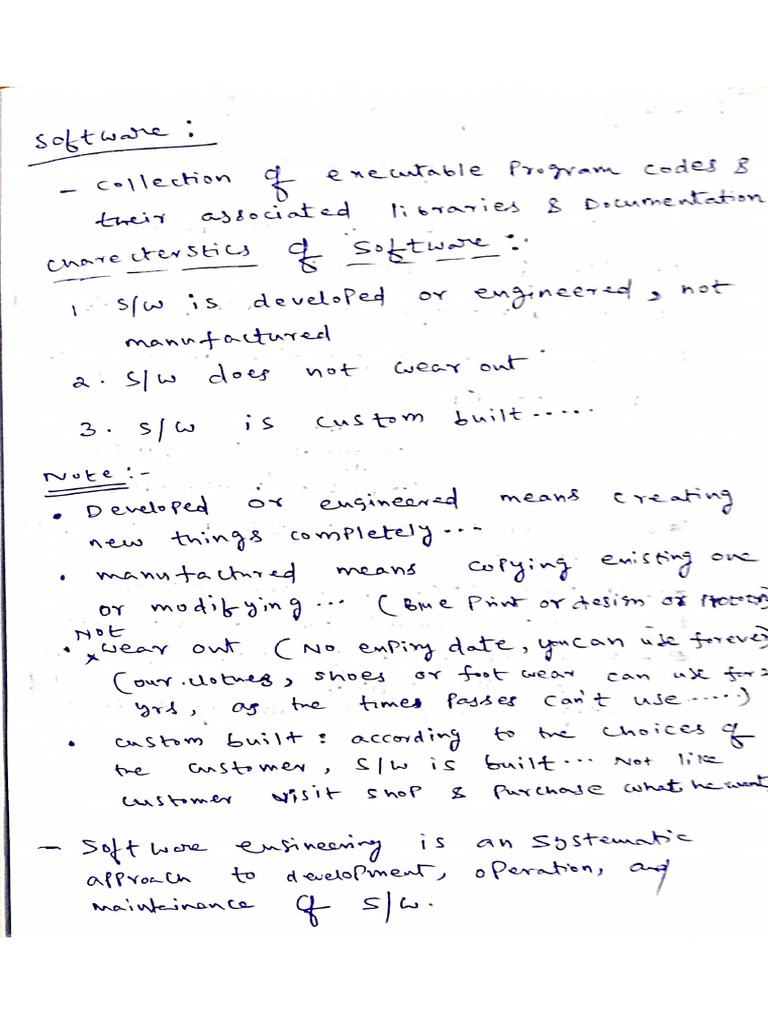 Software :
- Collection of executable Program codes &
their associated libraries & Documentation
Charecterstics of Software :-
1. S/w is developed or engineered, not
manufactured
2. S/w does not wear out
3. S/w is custom built.....
Note :-
• Developed or engineered means creating
new things completely...
• manufactured means copying existing one
or modifying... (Blue Print or design or
Not
• wear out (No expiry date, you can use forever)
(our clothes, shoes or foot wear can use for 2
yrs, as the times passes can't use.....)
• custom built : according to the choices of
the customer, S/w is built... Not like
customer visit shop & purchase what he want
- Software engineering is an systematic
approach to development, operation, and
maintainance of S/w.